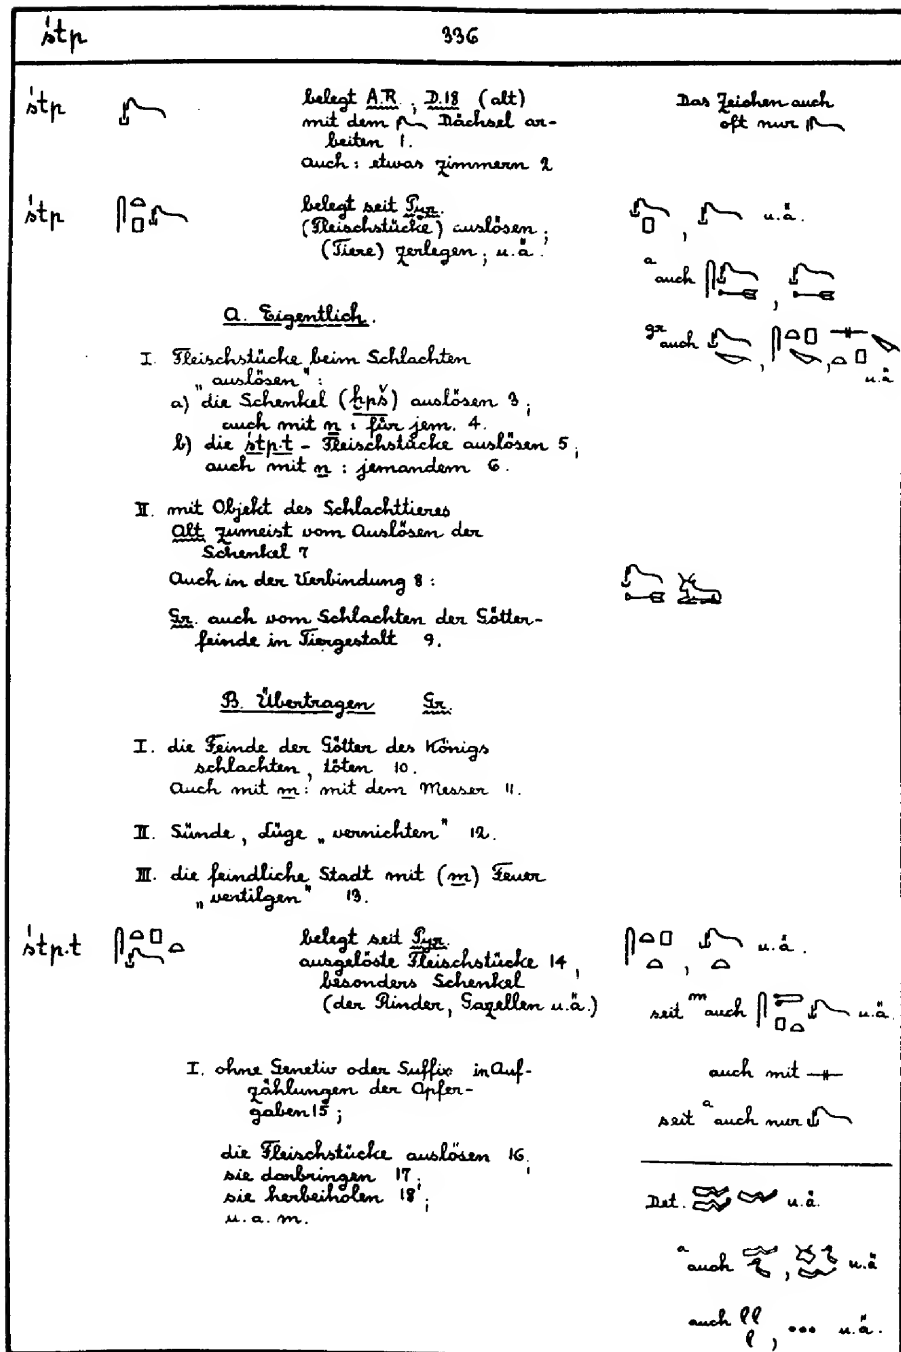 śtp 336
śtp belegt A.R., D.18 (alt) Das Zeichen auch
mit dem Dächsel ar- oft nur
beiten 1.
auch: etwas zimmern 2
śtp belegt seit Pyr.
(Fleischstücke) auslösen; u.ä.
(Tiere) zerlegen; u.ä.
a auch
A. Eigentlich.
gr auch
I. Fleischstücke beim Schlachten u.ä
„auslösen":
a) die Schenkel (ḫpš) auslösen 3;
auch mit n: für jem. 4.
b) die śtp.t - Fleischstücke auslösen 5;
auch mit n: jemandem 6.
II. mit Objekt des Schlachttieres
Alt zumeist vom Auslösen der
Schenkel 7
Auch in der Verbindung 8:
Gr. auch vom Schlachten der Götter-
feinde in Tiergestalt 9.
B. Übertragen Gr.
I. die Feinde der Götter des Königs
schlachten, töten 10.
Auch mit m: mit dem Messer 11.
II. Sünde, Lüge „vernichten" 12.
III. die feindliche Stadt mit (m) Feuer
„vertilgen" 13.
śtp.t belegt seit Pyr. u.ä.
ausgelöste Fleischstücke 14,
besonders Schenkel
(der Rinder, Gazellen u.ä.) seit m auch u.ä.
I. ohne Genetiv oder Suffix in Auf- auch mit
zählungen der Opfer-
gaben 15; seit a auch nur
die Fleischstücke auslösen 16;
sie darbringen 17;
sie herbeiholen 18; Det. u.ä.
u.a.m.
a auch u.ä
auch u.ä.